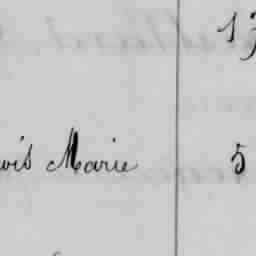 13
ois Marie 5